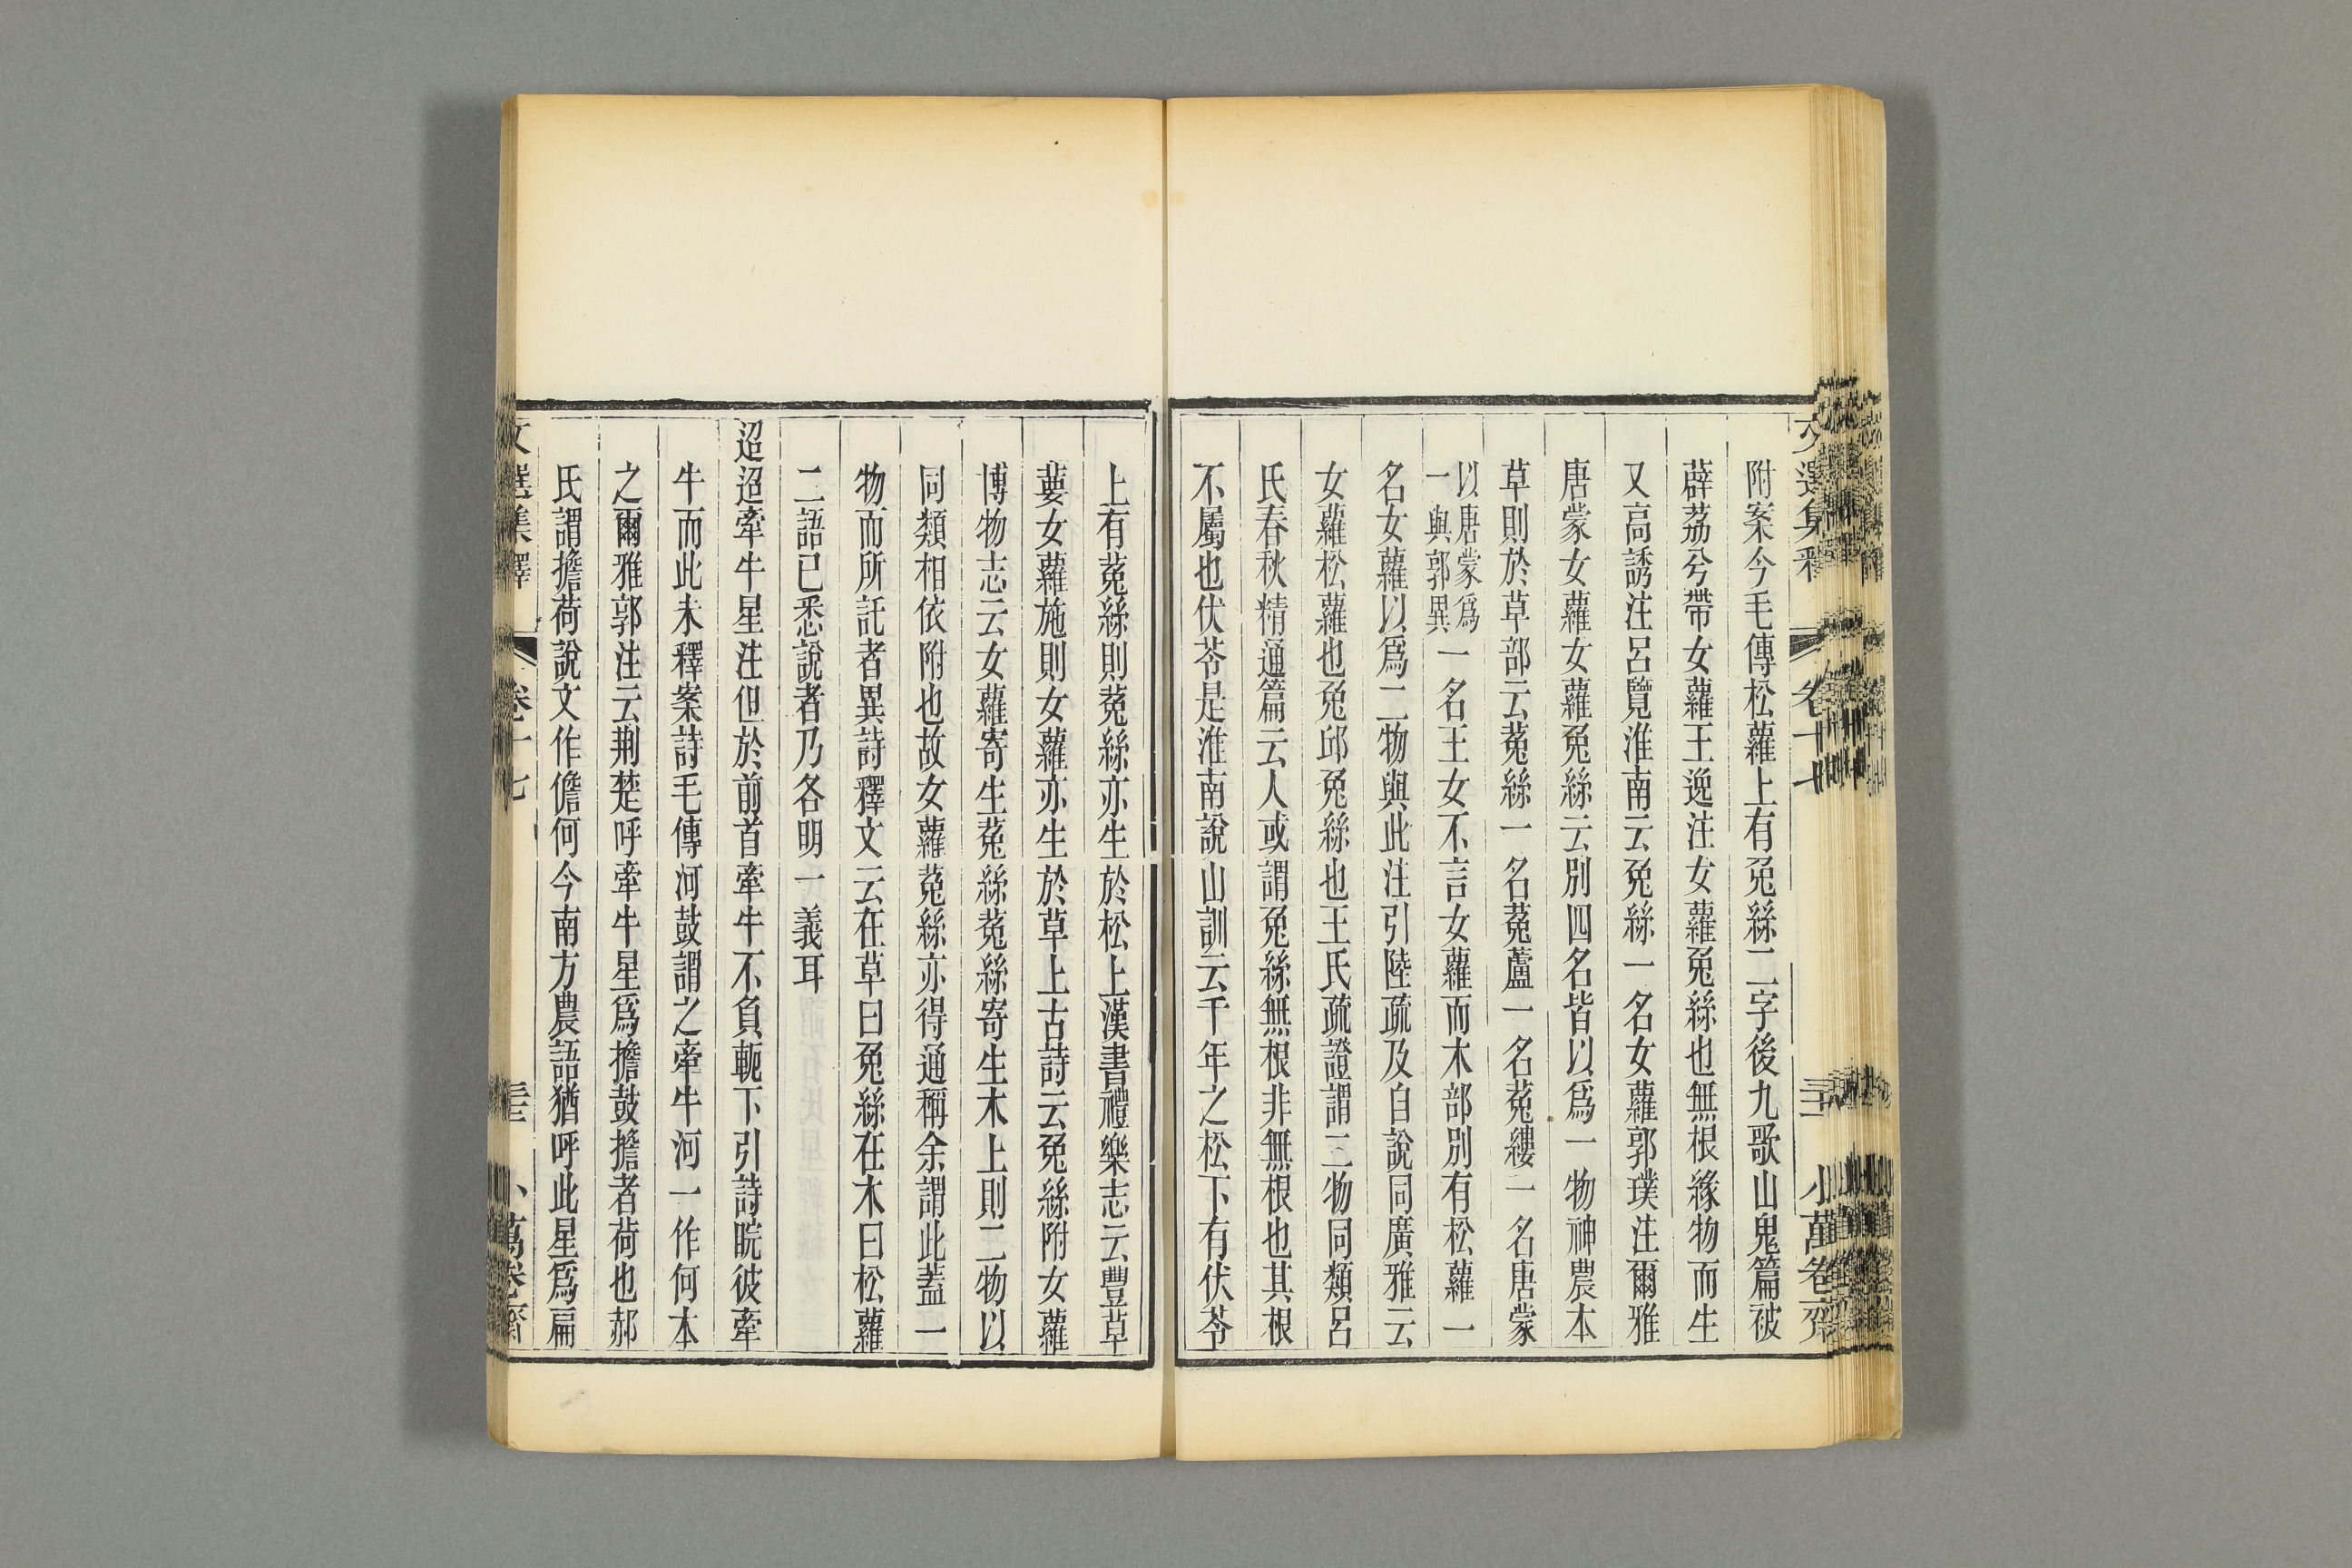 附案今毛傳松蘿上有兔絲二字後九歌山鬼篇被
薜荔兮帶女蘿王逸注女蘿兔絲也無根緣物而生
又高誘注呂覽淮南云兔絲一名女蘿郭璞注爾雅
唐蒙女蘿女蘿兔絲云別四名皆以爲一物神農本
草則於草部云菟絲一名菟蘆一名菟縷一名唐蒙
以唐蒙爲
一與郭異
一名王女不言女蘿而木部別有松蘿一
名女蘿以爲二物與此注引陸疏及自說同廣雅云
女蘿松蘿也兔邱兔絲也王氏疏證謂二物同類呂
氏春秋精通篇云人或謂兔絲無根非無根也其根
不屬也伏苓是淮南說山訓云千年之松下有伏苓
上有菟絲則菟絲亦生於松上漢書禮樂志云豐草
葽女蘿施則女蘿亦生於草上古詩云兔絲附女蘿
博物志云女蘿寄生菟絲菟絲寄生木上則二物以
同類相依附也故女蘿菟絲亦得通稱余謂此蓋一
物而所託者異詩釋文云在草曰兔絲在木曰松蘿
二語已悉說者乃各明一義耳
迢迢牽牛星注但於前首牽牛不負軛下引詩睆彼牽
牛而此未釋案詩毛傳河鼓謂之牽牛河一作何本
之爾雅郭注云荆楚呼牽牛星爲擔鼓擔者荷也郝
氏謂擔荷說文作儋何今南方農語猶呼此星爲扁
文選集釋
卷十七
萬卷齋